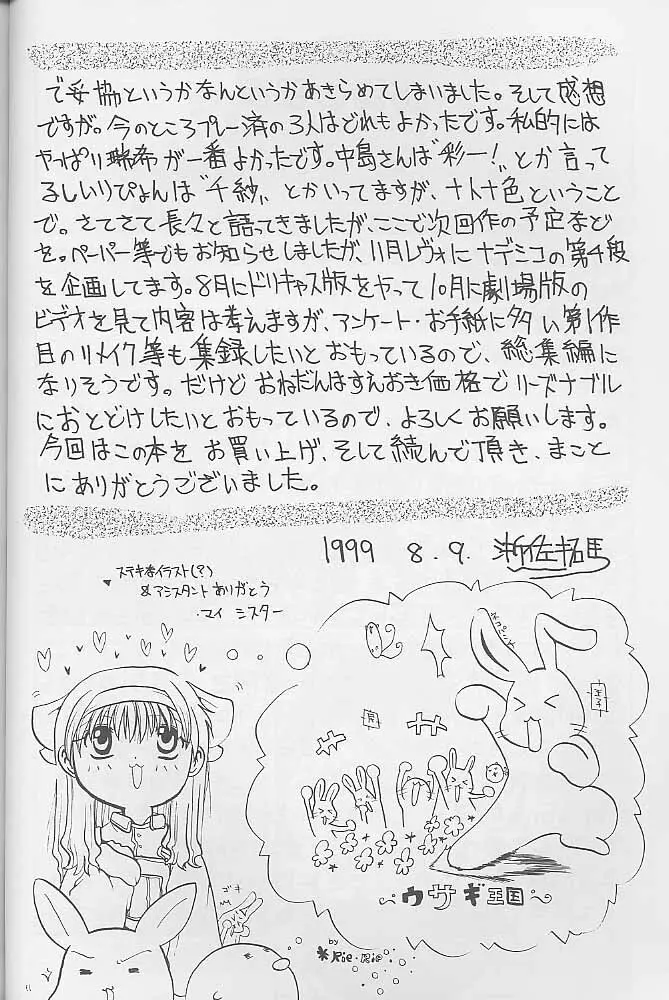 で妥協というかなんというかあきらめてしまいました。そして感想
ですが。今のところプレー済の3人はどれもよかったです。私的には
やっぱり瑞希が一番よかったです。中島さんは"彩一!"とか言って
るしいりぴょんは"千紗"とかいってますが、十人十色ということ
で。さてさて長々と語ってきましたが、ここで次回作の予定など
を。ペーパー等でもお知らせしましたが、11月レヴォにナデシコの第4段
を企画してます。8月にドリキャス版をやって10月に劇場版の
ビデオを見て内容は考えますが、アンケート・お手紙に多い第1作
目のリメイク等も集録したいとおもっているので、総集編に
なりそうです。だけどおねだんはすえおき価格でリーズナブル
におとどけしたいとおもっているので、よろしくお願いします。
今回はこの本をお買い上げ、そして続んで頂き、まこと
にありがとうございました。
1999 8.9.
ステキなイラスト(?)
&アシスタントありがとう
・マイ シスター
王子
ゴキ
〜ウサギ王国〜
by
*Rie・Rie